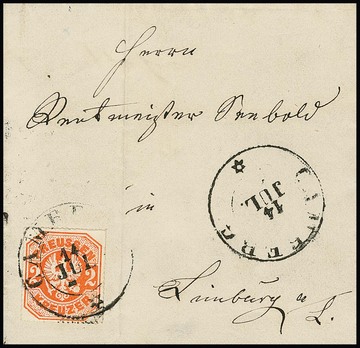 Herrn
Rentmeister Seebold
in
Limburg a/L.
CAMBERG
14
JUL
PREUSSEN
2 2
KREUZER
CAMBERG
14
JUL